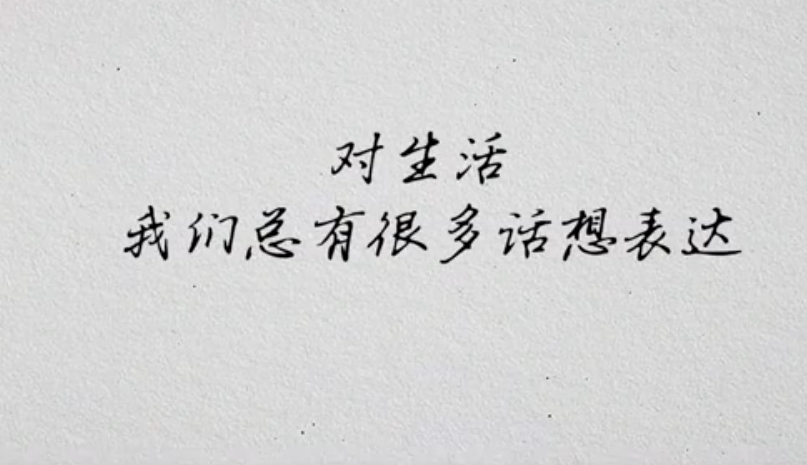 对生活
我们总有很多话想表达